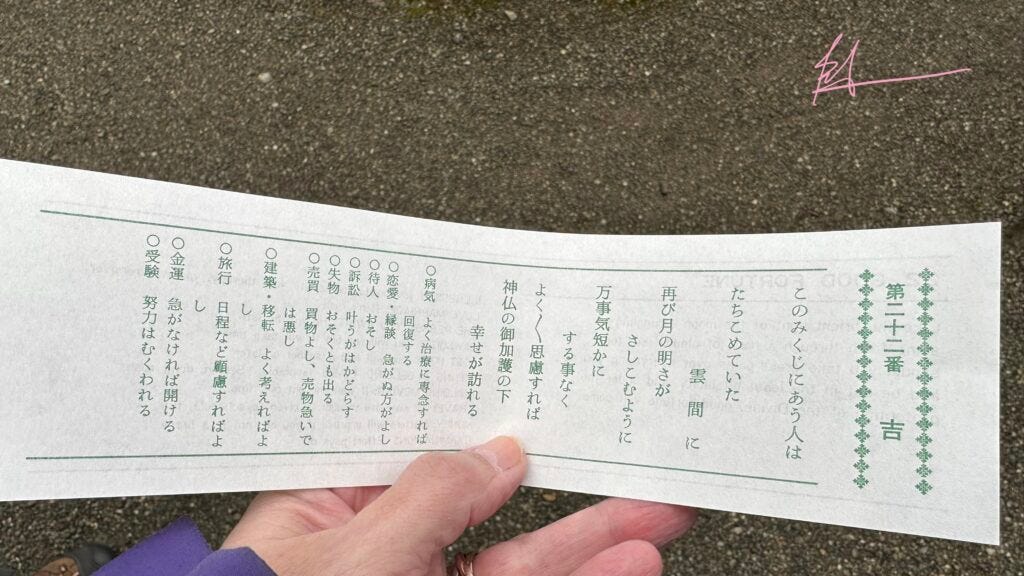 第二十二番　吉
このみくじにあう人は
たちこめていた
雲間に
再び月の明さが
さしこむように
万事気短かに
する事なく
よく〱思慮すれば
神仏の御加護の下
幸せが訪れる
○病気　よく治療に専念すれば
回復する
○恋愛・縁談　急がぬ方がよし
○待人　おそし
○訴訟　叶うがはかどらず
○失物　おそくとも出る
○売買　買物よし、売物急いで
は悪し
○建築・移転　よく考えればよ
し
○旅行　日程など顧慮すればよ
し
○金運　急がなければ開ける
○受験　努力はむくわれる
GOOD FORTUNE